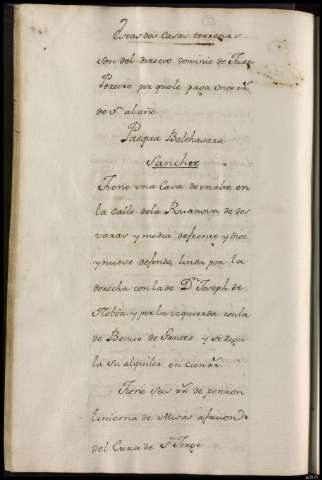 Y estas dos Casas terrenas
son del directo dominio de
Pereiro pr. que le paga once rs.
de vn. al año
Pasqua Balthasara
Sanchez
Tiene vna Casa de vn alto en
la calle dela Ruanova de dos
varas y media de frente y diez
y nueve de fondo, linda por la
derecha con la de Dn. Joseph de
Noboa y por la izquierda con la
de Benito de Santos y se regu
la su alquiler en cien rs.
Tiene seis rs. de pension
limosna de Misas a favor
del Cura de Sn. Jorge